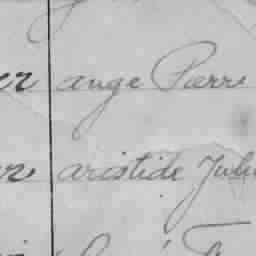 er ange Pierre
er aristide Juli